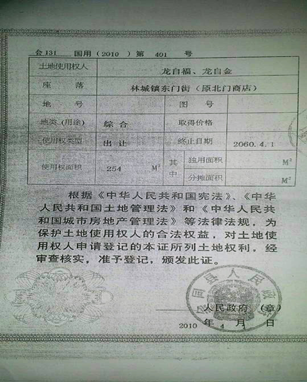 会131 国用（2010）第 401 号
土地使用权人 龙自福、龙自金
座落 林城镇东门街（原北门商店）
地号 图号
地类（用途） 综合 取得价格
使用权类型 出让 终止日期 2060.4.1
使用权面积 254 M² 其中 独用面积 M²
分摊面积 M²
根据《中华人民共和国宪法》、《中华
人民共和国土地管理法》和《中华人民共
和国城市房地产管理法》等法律法规，为
保护土地使用权人的合法权益，对土地使
用权人申请登记的本证所列土地权利，经
审查核实，准予登记，颁发此证。
人民政府（章）
2010 年 4 月 日